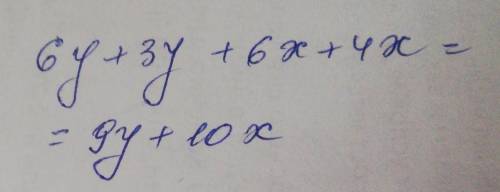 6y+3y +6x+4x=
=9y+10x